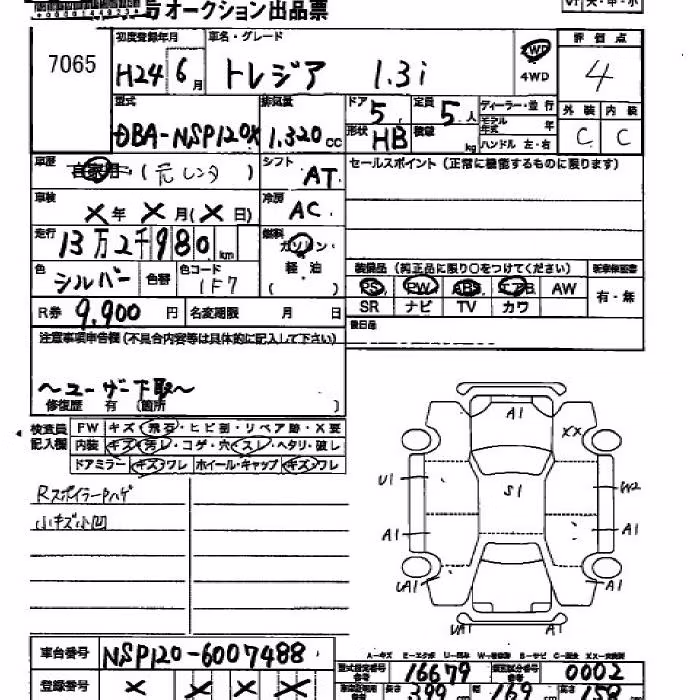 オークション出品票
7065
初度登録年月
車名・グレード
評価点
H24 6月
トレジア 1.3i
4WD
4
型式
排気量
ドア 5
定員 5人
ディーラー・並行
外装 内装
DBA-NSP120X
1,320cc
形状 HB
積載 kg
モデル年式 年
ハンドル 左・右
C C
車歴
自家用 (元レンタ)
シフト
AT
セールスポイント (正常に機能するものに限ります)
車検
X年 X月(X日)
冷房
AC
走行
13万2千980km
燃料
ガソリン・軽油
( )
色
シルバー
色替
色コード
1F7
装備品 (純正品に限り〇をつけてください)
PS PW ABS エアB AW
有・無
SR ナビ TV カワ
R券 9,900円
名変期限 月 日
後日品
注意事項申告欄 (不具合内容等は具体的に記入して下さい)
~ユーザー下取~
修復歴 有 (箇所 )
検査員記入欄
FW キズ・飛石・ヒビ割・リペア跡・X要
内装 キズ・汚レ・コゲ・穴・スレ・ヘタリ・破レ
ドアミラー キズ・ワレ ホイール・キャップ キズ・ワレ
Rスポイラーハゲ
小キズ小凹
A1
XX
U1
S1
W2
A1
A1
UA1
A1
A1
車台番号
NSP120-6007488
A-キズ E-エクボ U-凹み
型式指定番号
16679
類別区分番号
0002
登録番号
X X X X
長さ 399cm
幅 169cm
高さ 158cm